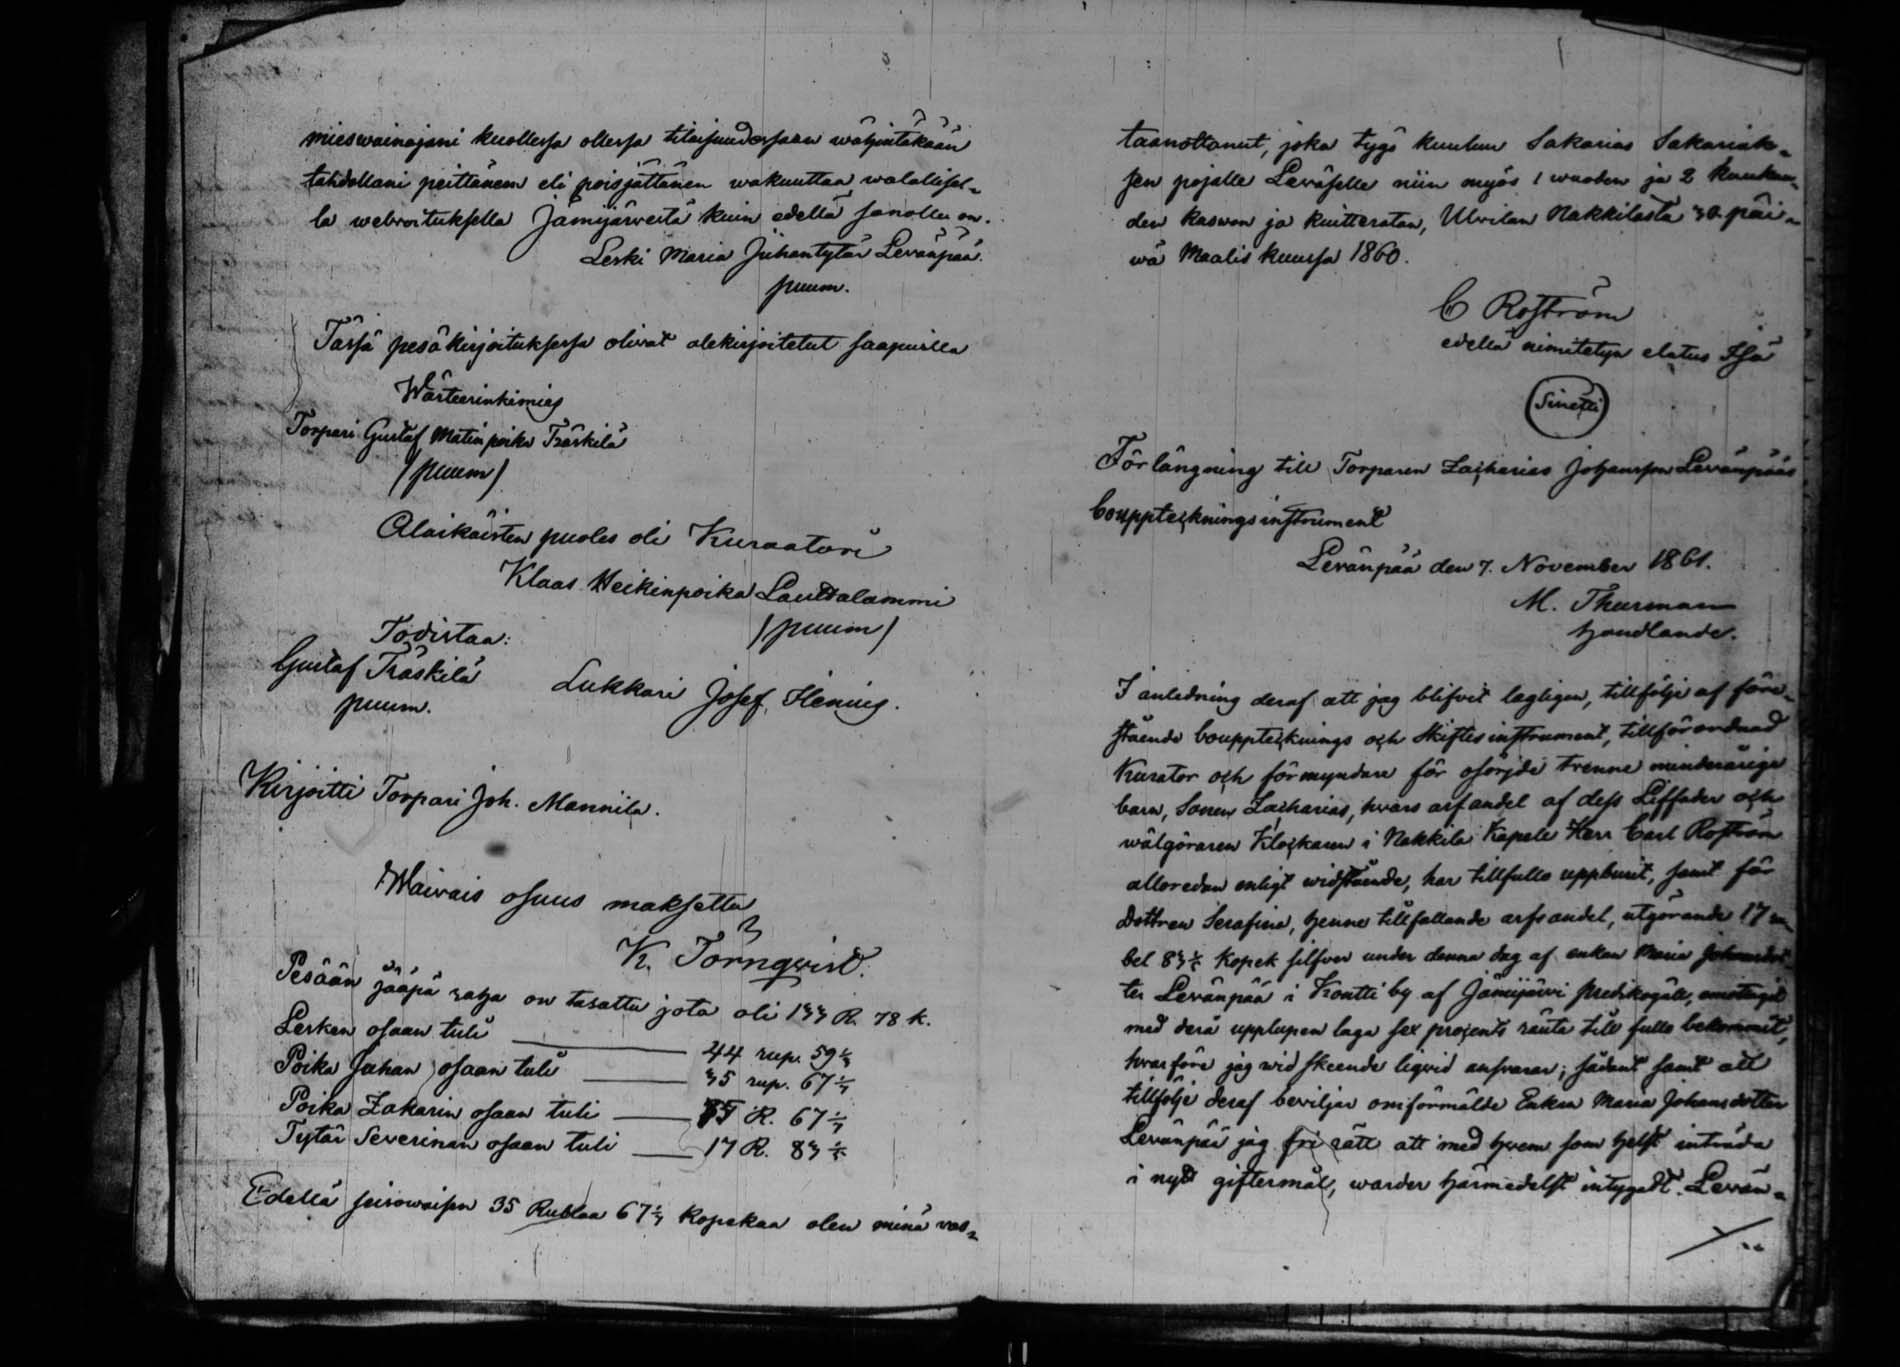 mieswainajani kuollessa ollessa tilaisuudessaan wähintäkään
tahdollani peittänen eli poisjättänen wakuuttaa walallisel-
la welwoituksella Jämijärveltä kuin edellä sanottu on.
Leski Maria Juhantytär Levänpää.
puum.
Täsä pesäkirjoituksessa olivat alekirjoitetut saapuilla
Wärteerinkimies
Torpari Gustaf Matinpoika Träskilä
(puum)
Alaikäisten puoles oli Kuraatori
Klaas Heikinpoika Lauttalammi
(puum)
Todistaa:
Gustaf Träskilä
puum.
Lukkari Josef Henius.
Kirjoitti Torpari Joh. Mannila.
Waivais osuus maksettu
K. Törnqvist.
Pesään jääpä raha on tasattu jota oli 133 R. 78 k.
Lesken osaan tuli 44 rup. 59 1/3
Poika Juhan osaan tuli 35 rup. 67 1/7
Poika Zakarin osaan tuli 35 R. 67 1/7
Tytär Severinan osaan tuli 17 R. 83 1/2
Edellä seisowaisen 35 Rublaa 67 1/7 kopekaa olen minä vas-
taanottanut, joka tygö kuuluu Sakarias Sakariak-
sen pojalle Leväselle niin myös 1 wuoden ja 2 kuukau-
den kaswon ja kuitteratan, Ulvilan Nakkilasta 30 päi-
wä Maalis kuussa 1860.
C Roström
edellä nimitetyn elatus Isä
Sinetti
Förlängning till Torparen Zacharias Johansson Levänpääs
bouppteckningsinstrument
Levänpää den 7. November 1861.
M. Thurman
handlande.
I anledning deraf att jag blifvit lagligen, tillfölje af före-
stående bouppteknings och skiftes instrument, tillförordnad
Kurator och förmyndare för osörjde trenne minderårige
barn, Sonen Zacharias, hvars arfandel af dess Liffader och
wälgöraren Klockaren i Nakkila Kapell Herr Carl Roström
alloredan enligt widstående, har tillfullo uppburit, samt för
Dottren Serafina, henne tillfallande arfsandel, utgörande 17 ru-
bel 83 1/2 kopek silfver under denna dag af enkan Maria Johansdot-
ter Levänpää i Kontti by af Jämijärvi Predikogäll, emottagit
med derå upplupen laga sex procents ränta till fullo bekommit,
hvarföre jag wid skeende liqvid ansvarar; sådant samt att
tillfölje deraf beviljar omförmälde Enkan Maria Johansdotter
Levänpää jag fri rätt att med hvem som helst inträda
i nytt giftermål, warder härmedelst intygadt. Levän-